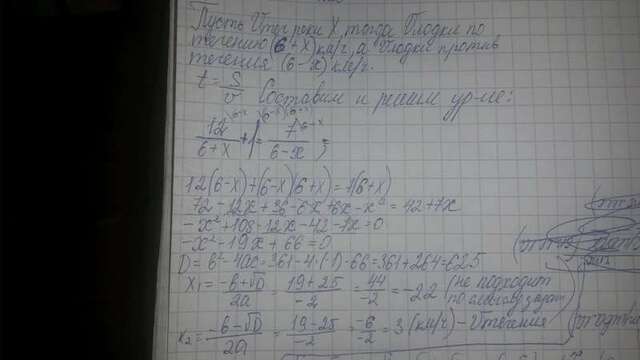 Пусть Vтеч реки X, тогда Vлодки по
течению (6+x) км/ч, а Vлодки против
течения (6-x) км/ч.
t = S/v Составим и решим ур-ие:
12/(6+x) + 1 = 7/(6-x) ;
12(6-x)+(6-x)(6+x)=7(6+x)
72-12x+36-6x+6x-x²=42+7x
-x²+108-12x-42-7x=0
-x²-19x+66=0
D=b²-4ac=361-4·(-1)·66=361+264=625
x₁ = (-b+√D)/2a = (19+25)/-2 = 44/-2 = -22 (не подходит
по
x₂ = (-b-√D)/2a = (19-25)/-2 = -6/-2 = 3 (км/ч) - Vтечения